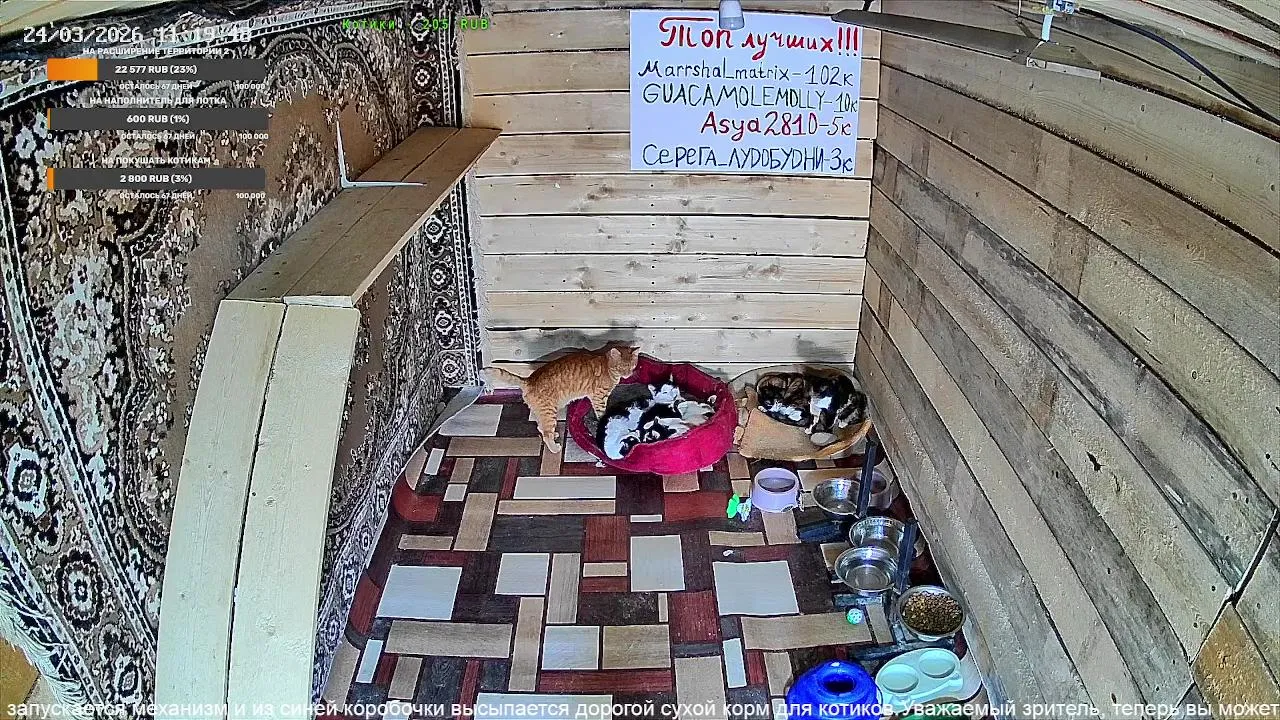 Котики - 205 RUB
24/03/2026 11:19:48
НА РАСШИРЕНИЕ ТЕРРИТОРИИ 2
22 577 RUB (23%)
0 ОСТАЛОСЬ 67 ДНЕЙ 100 000
НА НАПОЛНИТЕЛЬ ДЛЯ ЛОТКА
600 RUB (1%)
0 ОСТАЛОСЬ 67 ДНЕЙ 100 000
НА ПОКУШАТЬ КОТИКАМ
2 800 RUB (3%)
0 ОСТАЛОСЬ 67 ДНЕЙ 100 000
Топ лучших!!!
Marrshal_matrix-102к
GUACAMOLEMOLLY-10к
Asya2810-5к
Серега_ЛУДОБУДНИ-3к
запускается механизм и из синей коробочки высыпается дорогой сухой корм для котиков.Уважаемый зритель, теперь вы может